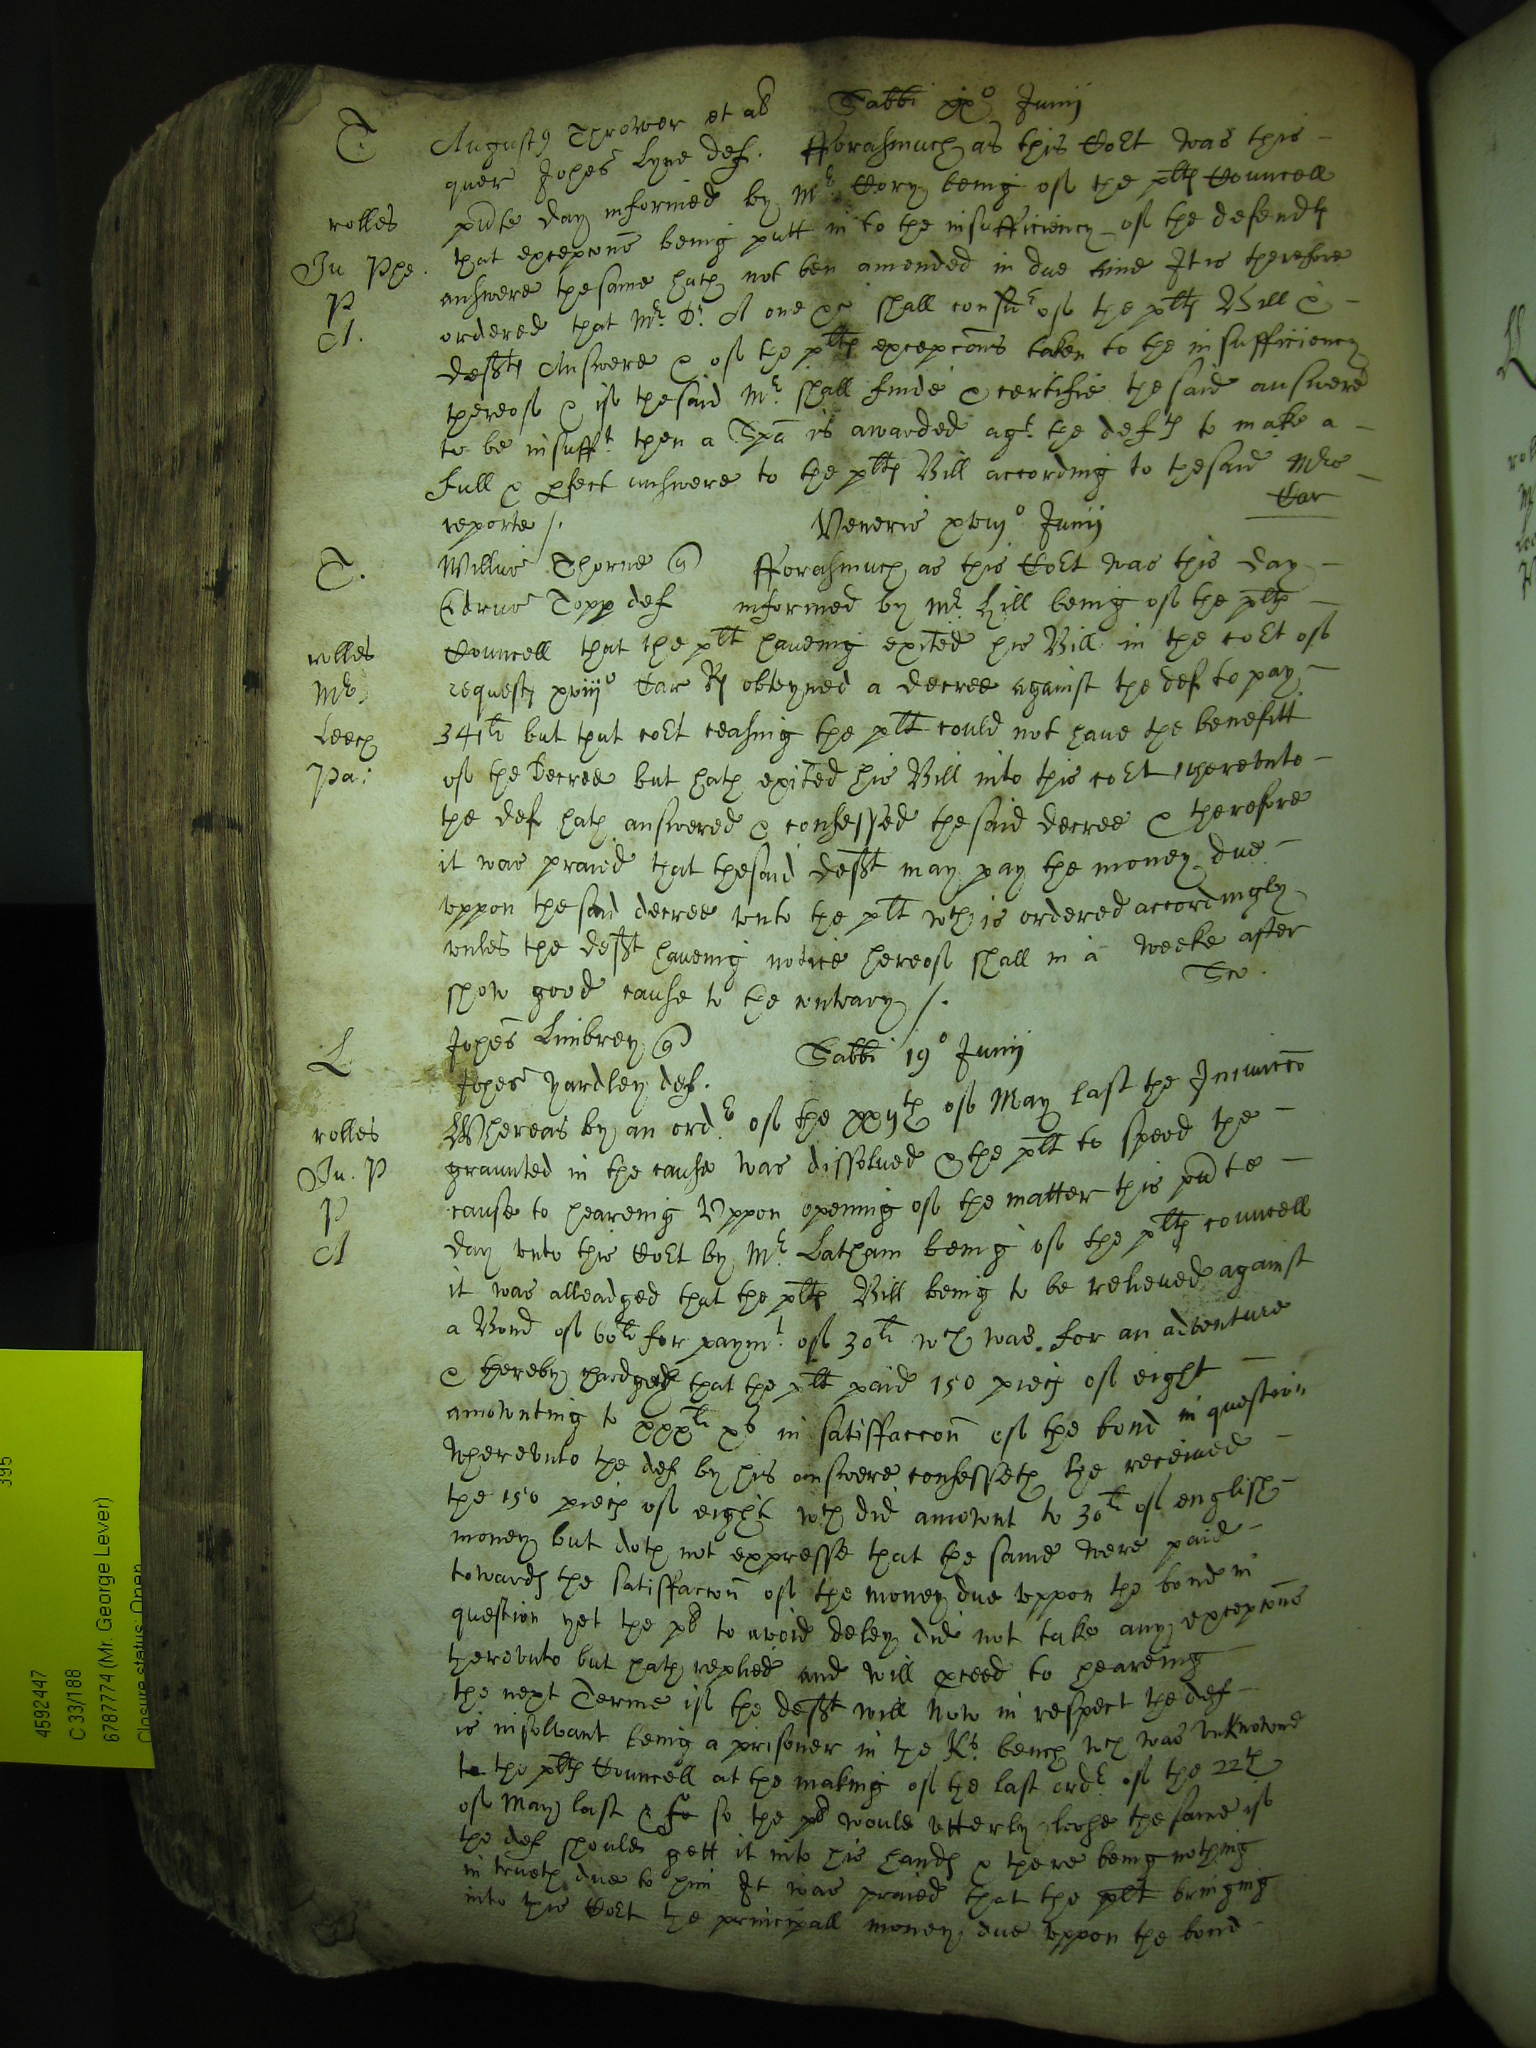 T. Augustus Thrower et al Sabbi xx° Junij
quer Johes Lyne def. fforasmuch as this Co͠rt was this
rolles p͠nte day informed by Mr. Cory being of the pl͠ts Councell
Ju Phe. that excepcons being putt in to the insufficiency of the defendts
P answere the same hath not ben amended in due time It is therefore
A. ordered that Mr. Dr. A one &c shall consider of the pl͠ts Bill &
defts Answere & of the pl͠ts excepcons taken to the insufficiency
thereof & if the said Mr. shall finde & certifie the said answere
to be insufft. then a Spa is awarded agt. the defts to make a
full & pfect answere to the pl͠ts Bill according to the said Mrs
reporte /. Car
Veneris xviij° Junij
T. Willus Thorne q fforasmuch as this Co͠rt was this day
Edrus Topp def informed by Mr. Hill being of the pl͠ts
rolles Councell that the pl͠t haveing exited his Bill in the co͠rt of
Mr. requests xviij° Car Rs obteyned a decree against the def to pay
Leech 341li but that co͠rt ceasing the pl͠t could not have the benefitt
Pa: of the Decree but hath exited his Bill into this co͠rt whereunto
the def hath answered & confessed the said decree & therefore
it was praied that the said deft may pay the money due
uppon the said decree unto the pl͠t wch is ordered accordingly
unles the deft haveing notice hereof shall in a weeke after
shew good cause to the contrary /. Sw.
L Johes Limbrey q Sabbi 19° Junij
Johes Yardley def.
rolles Whereas by an ordr. of the xxijth of May last the Iniuncco͠n
Ju. P graunted in the cause was dissolved & the pl͠t to speed the
P cause to heareing Uppon opening of the matter this p͠nte
A day unto this Co͠rt by Mr. Latham being of the pl͠ts councell
it was alleadged that the pl͠ts Bill being to be relieved against
a Bond of 60li for paymt. of 30li wch was for an adventure
& thereby chardgeth that the pl͠t paid 150 pieces of eight
amounting to xxxli xs in satisfaccon of the bond in question
whereunto the def by his answere confesseth he received
the 150 pieces of eight wch did amount to 30li of english
money but doth not expresse that the same were paid
towards the satisfaccon of the money due uppon the bond in
question yet the pl to avoid deley did not take any excepcons
thereunto but hath replied and will pceed to heareing
the next Terme if the deft will Now in respect the def
is insolvant being a prisoner in the Ks. bench wch was unknowne
to the pl͠ts Councell at the making of the last ordr of the 22th
of May last & so the pl would utterly loose the same if
the def should gett it into his hands & there being nothing
in trueth due to him It was praied that the pl͠t bringing
into this Co͠rt the principall money due uppon the bond
395
4592447
C 33/188
6787774 (Mr. George Lever)
Closure status: Open